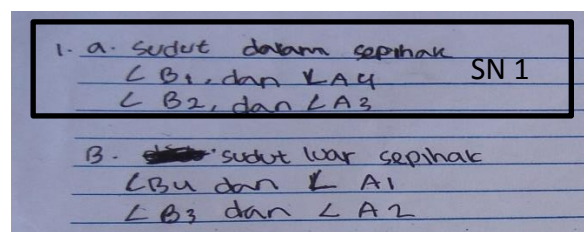 1. a. sudut dalam sepihak
∠ B1, dan ∠A4
∠ B2, dan ∠A3
SN 1
B. sudut luar sepihak
∠B4 dan ∠ A1
∠B3 dan ∠ A2